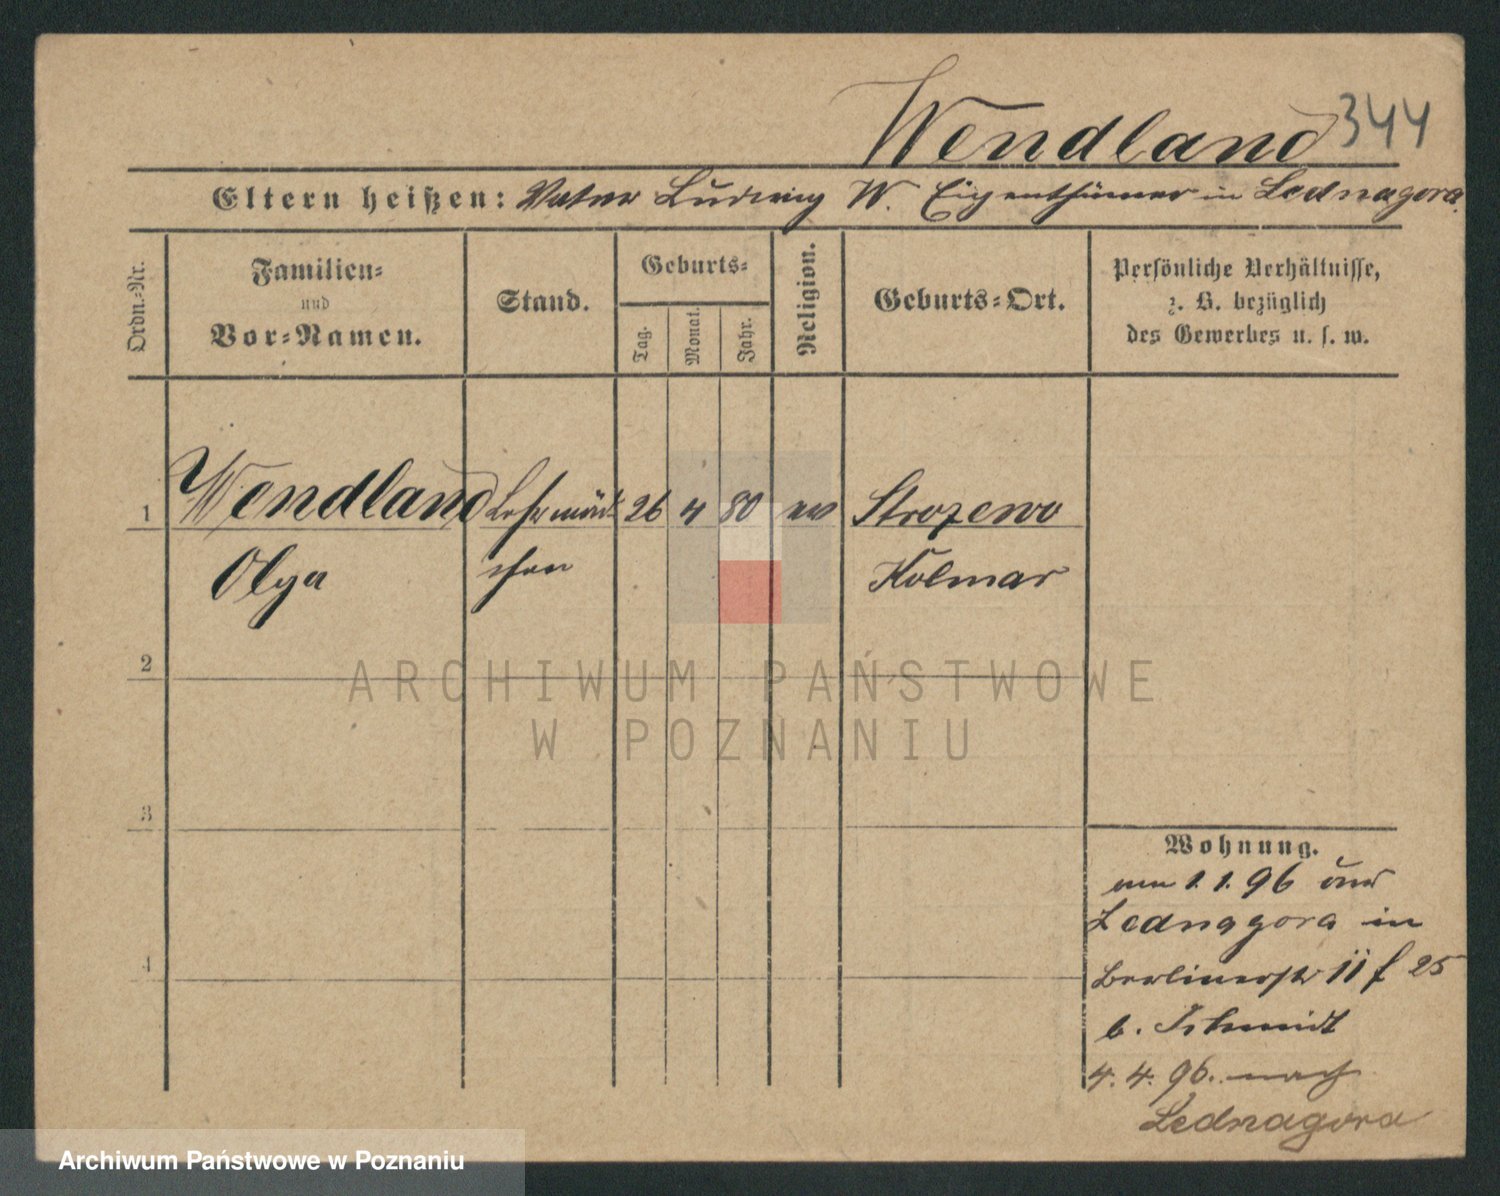 Wendland 344
Eltern heißen: Vater Ludwig W. Eigenthümer in Lednagora.
Ordn.-Nr.
Familien-
und
Vor-Namen.
Stand.
Geburts-
Tag.
Monat.
Jahr.
Religion.
Geburts-Ort.
Persönliche Verhältnisse,
z. B. bezüglich
des Gewerbes u. s. w.
1 Wendland Lehrmäd 26 4 80 ev Strozewo
Olga chen Kolmar
2
3
4
Wohnung.
am 1.1.96 aus
Lednagora in
Berlinerstr 11 f 25
b. Schmidt
4.4.96. nach
Lednagora
ARCHIWUM PAŃSTWOWE
W POZNANIU
Archiwum Państwowe w Poznaniu